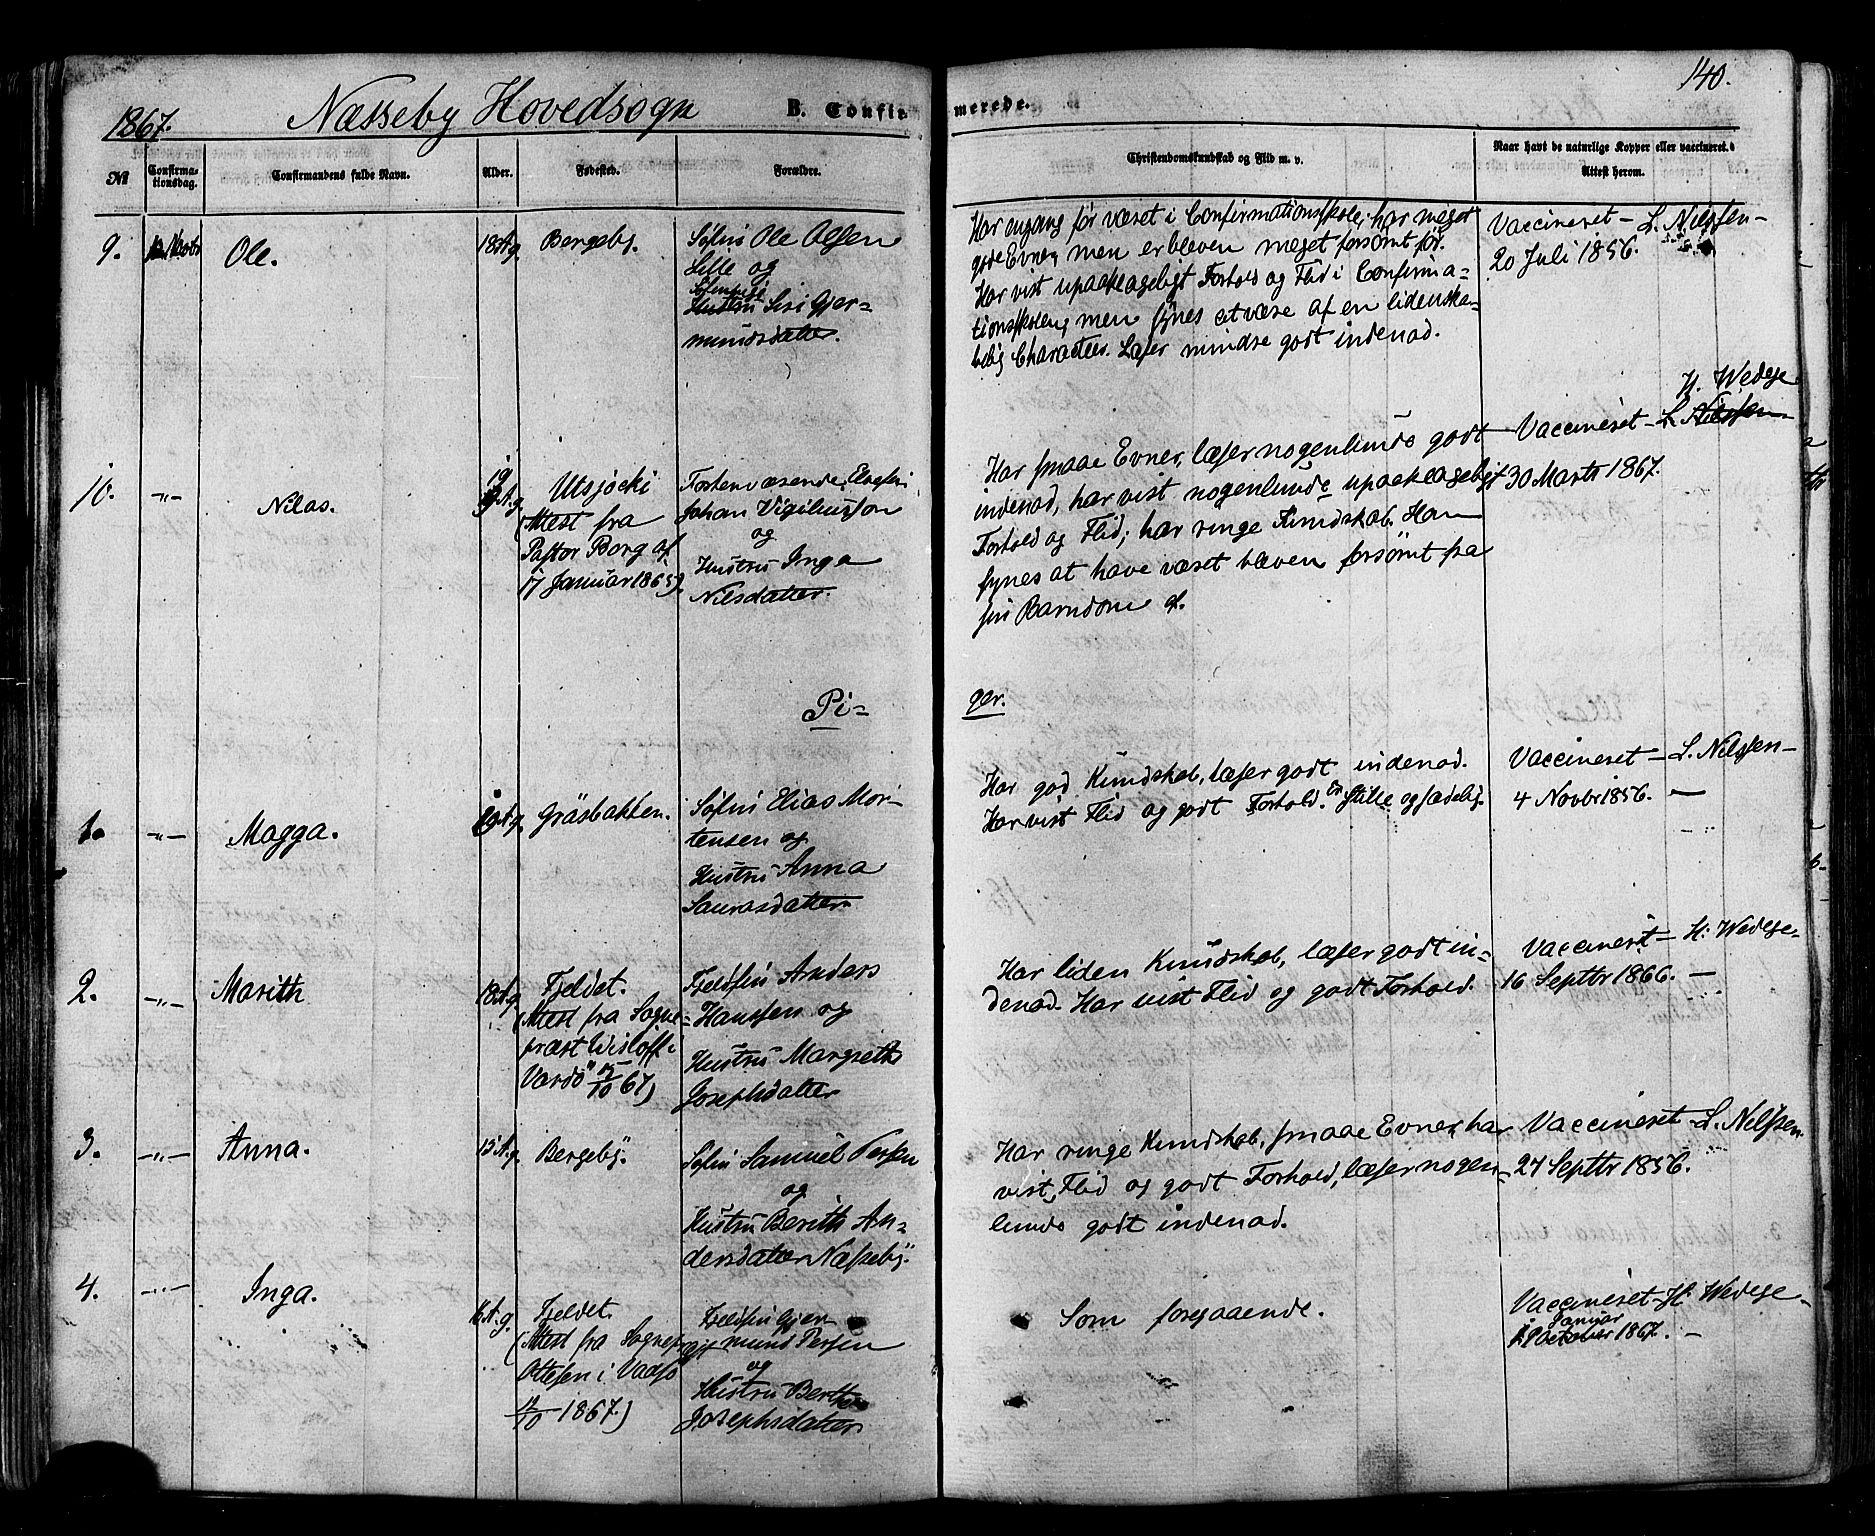 1867.
Næsseby Hovedsogn
B. Confir
merede.
140.
No
Confirma-
tionsdag.
Confirmandens fulde Navn.
Alder.
Fødested.
Forældre.
Christendomskundskab og Flid m. v.
Naar havt de naturlige Kopper eller vaccineret.
Attest herom.
9.
Ole.
18 A. g.
Bergeby.
Søfin Ole Olsen
Lille og
Hustru Sisi Gjer-
mundsdatter.
Har engang før været i Confirmationsskole; har meget
gode Evner, men er bleven meget forsømt før.
Har vist upaaklageligt Forhold og Flid i Confirma-
tionsskolen, men synes at være af en lidenska-
belig Character. Læser mindre godt indenad.
Vaccineret – L. Nilssen –
20 Juli 1856.
10.
–"–
Nilas.
19
A. g.
Utsjocki
(Attest fra
Pastor Borg af
17 Januar 1865).
Forhenværende Elvefin
Johan Vigiliusson
og
Hustru Inga
Nilsdatter.
Har smaae Evner, læser nogenlunde godt
indenad, har vist nogenlunde upaaklageligt
Forhold og Flid; har ringe Kundskab. Han
synes at have været bleven forsømt fra
sin Barndom af.
H. Wedege
Vaccineret – L. Nilssen
30 Marts 1867.
Pi-
ger.
1.
–"–
Magga.
A. g.
Gräsbakken.
Søfin Elias Mor-
tensen og
Hustru Anna
Saurasdatter
Har god Kundskab, læser godt indenad.
Har vist Flid og godt Forhold. Er stille og sædelig.
Vaccineret – L. Nilssen –
4 Novbr 1856. –
2.
–"–
Marith
18 A. g.
Fjeldet.
(Attest fra Sogne-
præst Wisløff i
Vardö 67)
Fjeldfin Anders
Hanssen og
Hustru Margreth
Josephsdatter
Har liden Kundskab, læser godt in-
denad. Har vist Flid og godt Forhold.
Vaccineret – H. Wedege –
16 Septbr 1866. –
3.
–"–
Anna.
15 A. g.
Bergeby.
Søfin Samuel Persen
og
Hustru Berith An-
dersdatter Næsseby.
Har ringe Kundskab, smaae Evner, har
vist Flid og godt Forhold, læser nogen-
lunde godt indenad.
Vaccineret – L. Nilssen.
27 Septbr 1856.
4.
–"–
Inga.
16 A. g.
Fjeldet.
(Attest fra Sognepr
Ottesen i Vadsø
12/10 1867.)
Fjeldfin Gjer-
mund Persen
og
Hustru Berith
Josephsdatter
Som foregaaende.
Vaccineret – H. Wedege –
Januar
October 1867. –